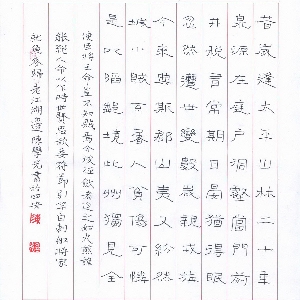 昔歲逢太平山林二十年
泉源在庭戶洞壑當門前
井稅有常期日晏猶得眠
忽然遭世變數歲親戎旃
今來典斯郡山夷又紛然
城小賊不屠人貧傷可憐
是以陷鄰境此州獨見全
使臣將王命豈不如賊焉今彼徵斂者迫之如火煎誰
能絕人命以作時世賢思欲委符節引竿自刺船將家
就魚麥歸老江湖邊